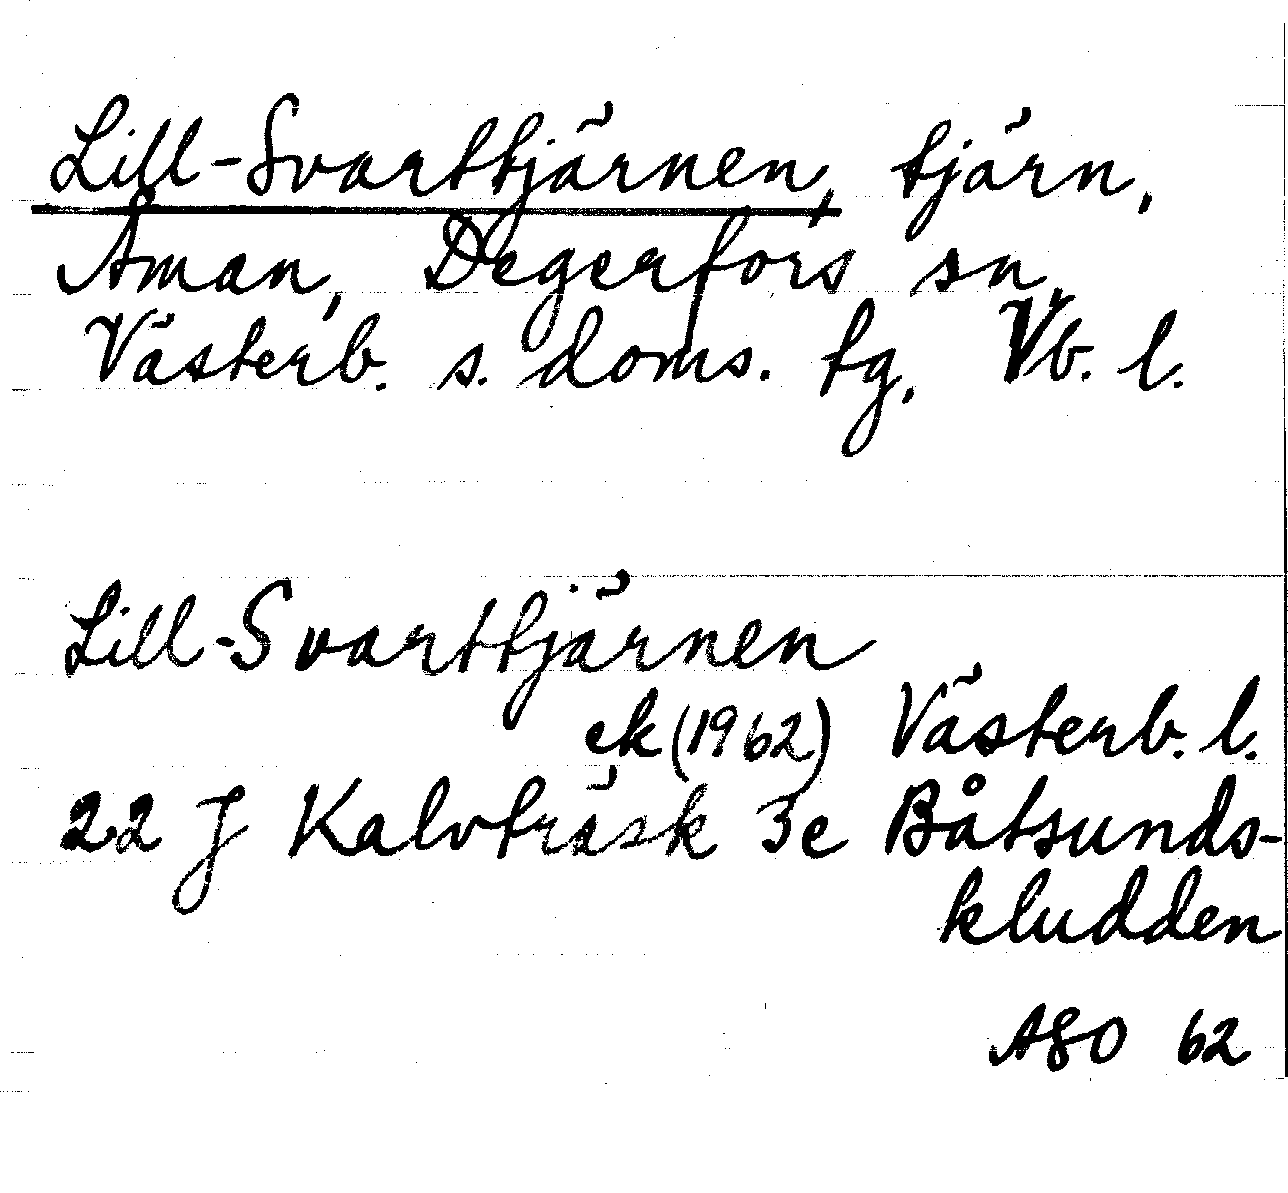 Lill-Svarttjärnen, tjärn,
Åman, Degerfors sn,
Västerb. s. doms. tg, Vb. l.
Lill-Svarttjärnen
ek (1962) Västerb. l.
22 J Kalvträsk 3e Båtsunds-
kludden
ASO 62